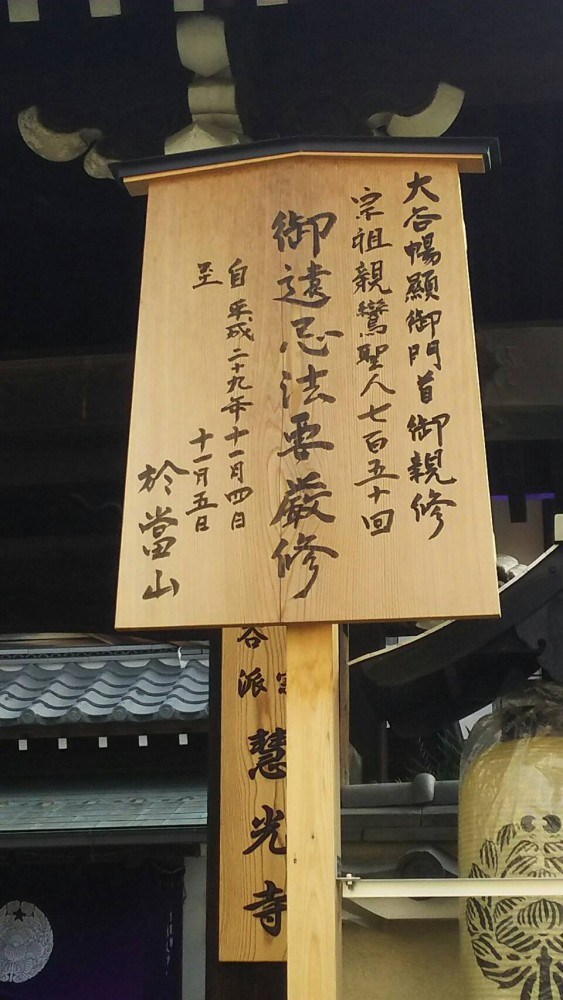 大谷暢顯御門首御親修
宗祖親鸞聖人七百五十回
御遠忌法要厳修
自 平成二十九年十一月四日
至 十一月五日
於當山
谷派
慧光寺